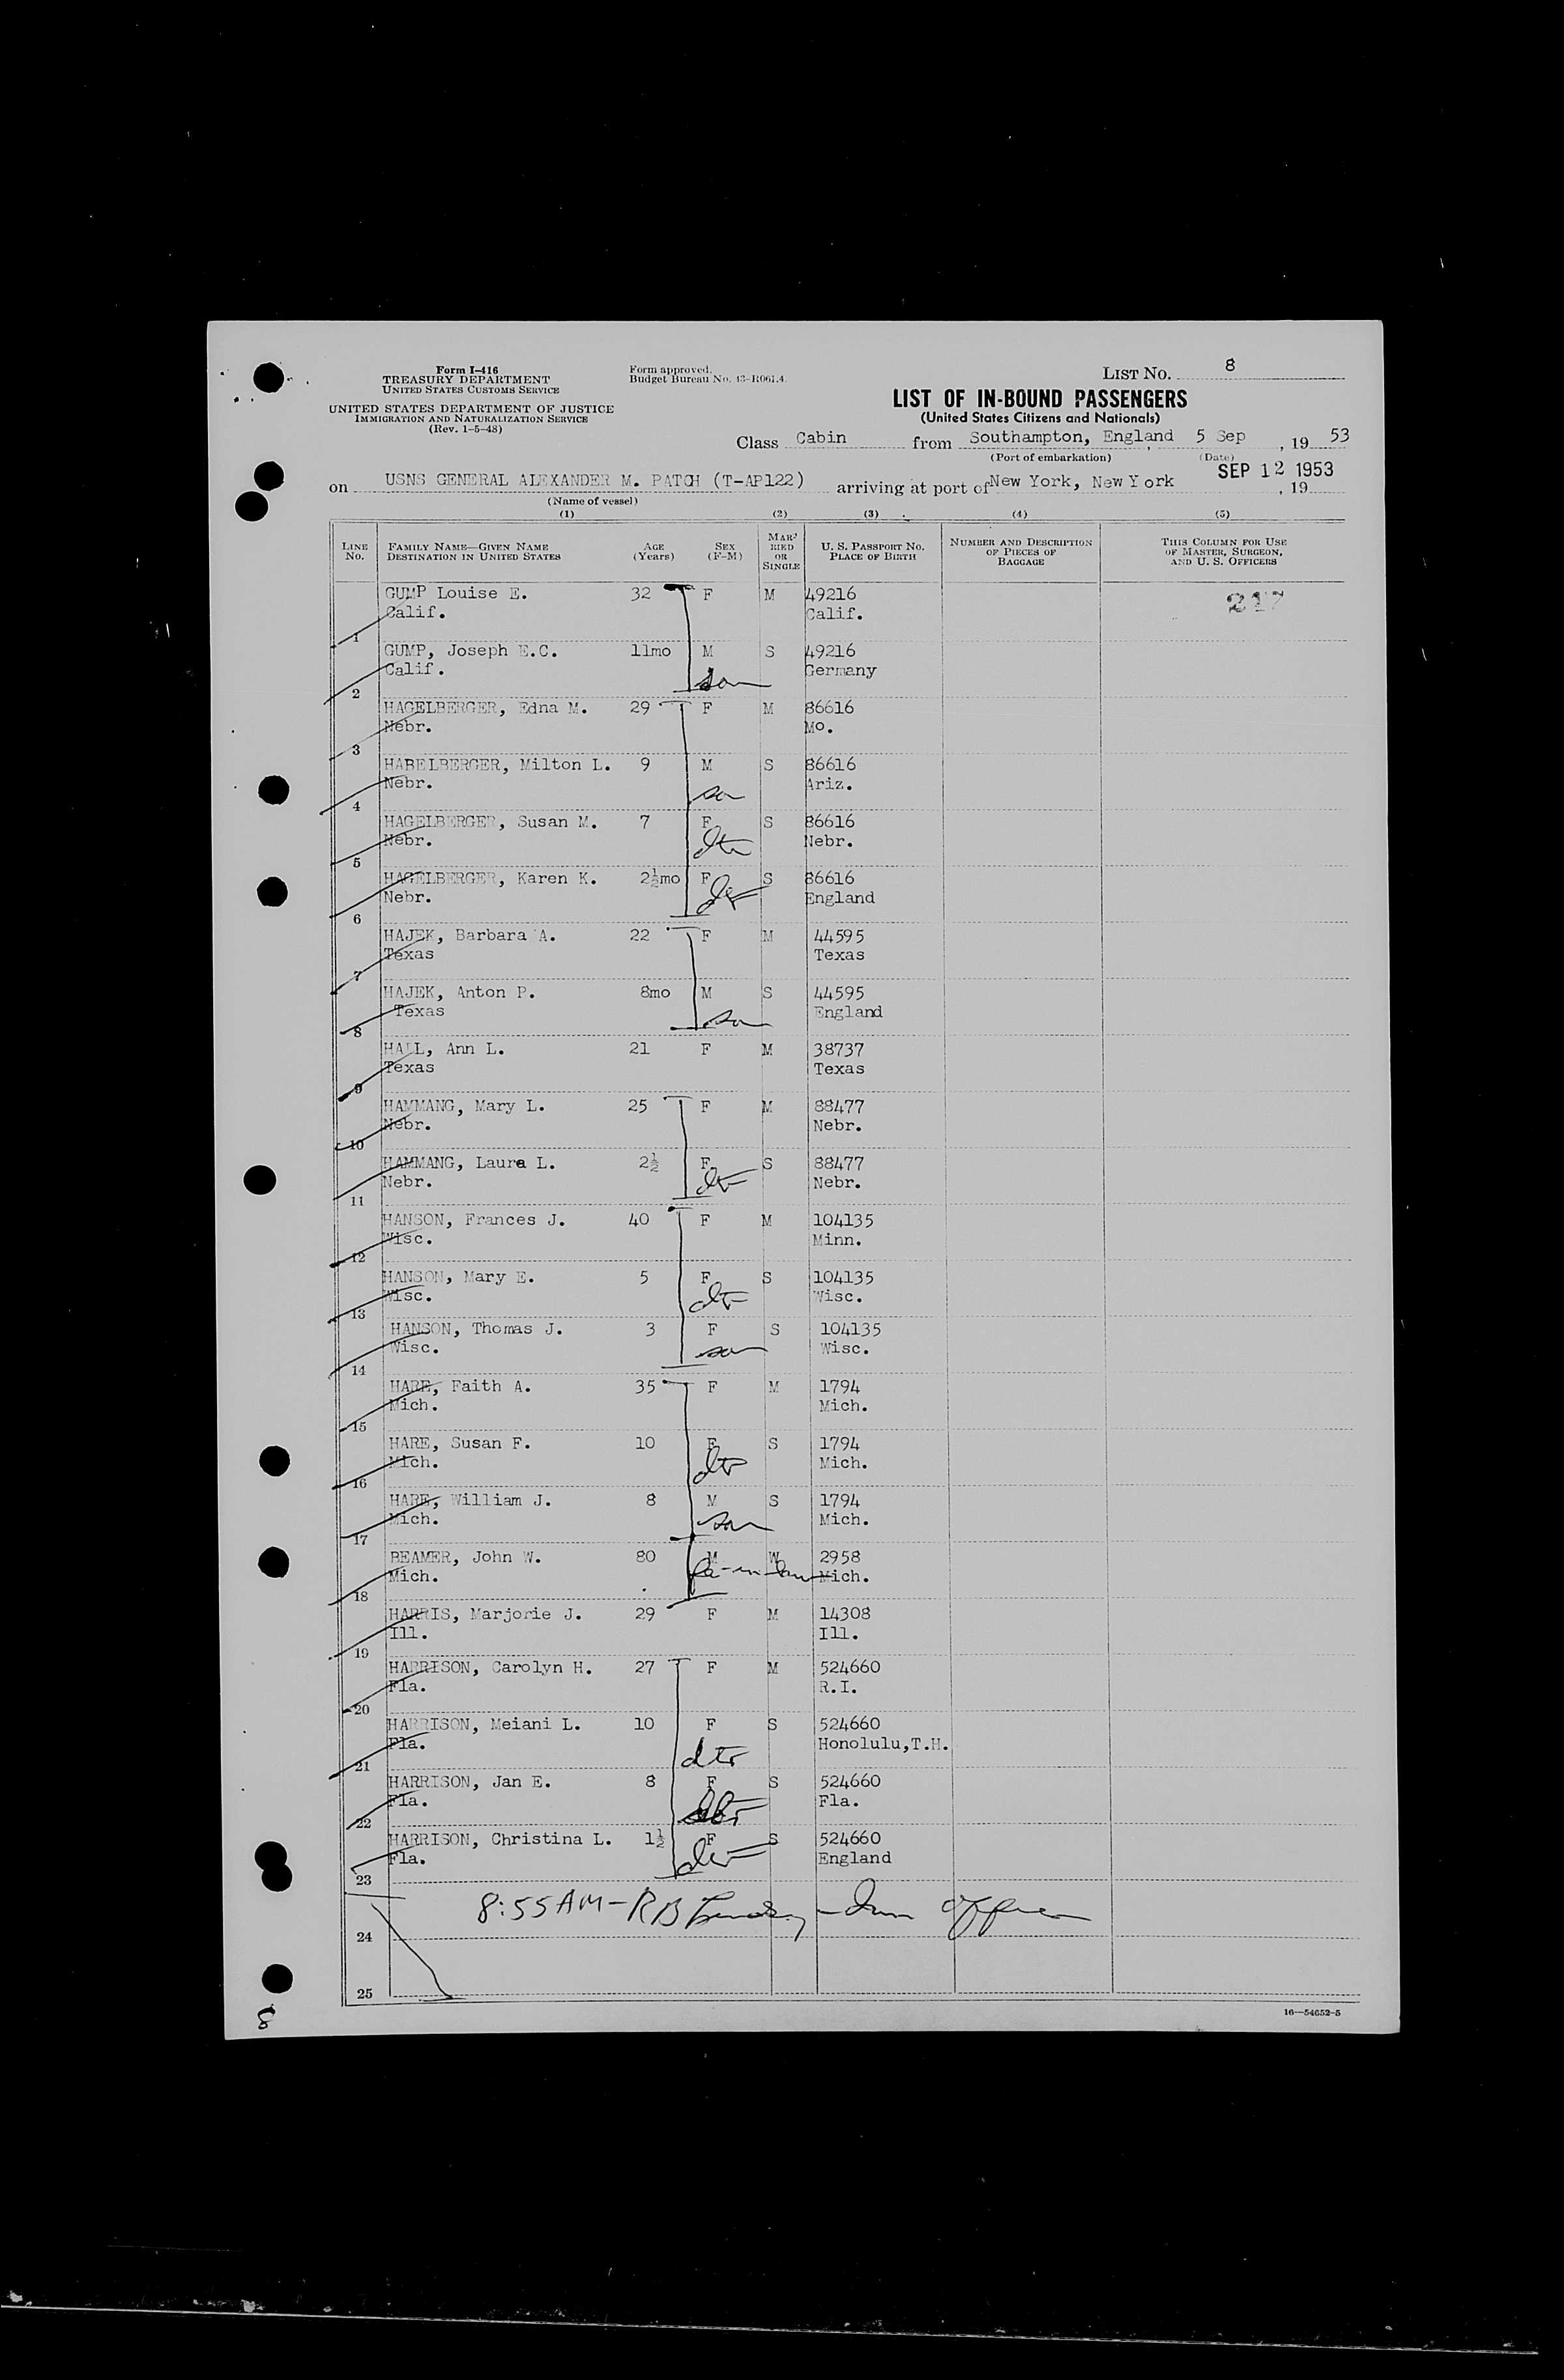 Form I-416
TREASURY DEPARTMENT
UNITED STATES CUSTOMS SERVICE
UNITED STATES DEPARTMENT OF JUSTICE
IMMIGRATION AND NATURALIZATION SERVICE
(Rev. 1-5-48)
Form approved.
Budget Bureau No. 43-R061.4.
LIST NO. 8
LIST OF IN-BOUND PASSENGERS
(United States Citizens and Nationals)
Class Cabin from Southampton, England 5 Sep, 19 53
(Port of embarkation) (Date)
SEP 12 1953
on USNS GENERAL ALEXANDER M. PATCH (T-AP122) arriving at port of New York, New York, 19
(Name of vessel)
(1) (2) (3) (4) (5)
LINE NO. FAMILY NAME—GIVEN NAME DESTINATION IN UNITED STATES AGE (Years) SEX (F-M) MARRIED OR SINGLE U. S. PASSPORT NO. PLACE OF BIRTH NUMBER AND DESCRIPTION OF PIECES OF BAGGAGE THIS COLUMN FOR USE OF MASTER, SURGEON, AND U. S. OFFICERS
GUMP Louise E. 32 F M 49216 217
Calif. Calif.
1
GUMP, Joseph E.C. 11mo M S 49216
Calif. son Germany
2
HAGELBERGER, Edna M. 29 F M 86616
Nebr. Mo.
3
HABELBERGER, Milton L. 9 M S 86616
Nebr. son Ariz.
4
HAGELBERGER, Susan M. 7 F S 86616
Nebr. dtr Nebr.
5
HAGELBERGER, Karen K. 2½mo F S 86616
Nebr. dtr England
6
HAJEK, Barbara A. 22 F M 44595
Texas Texas
7
HAJEK, Anton P. 8mo M S 44595
Texas son England
8
HALL, Ann L. 21 F M 38737
Texas Texas
9
HAMMANG, Mary L. 25 F M 88477
Nebr. Nebr.
10
HAMMANG, Laura L. 2½ F S 88477
Nebr. dtr Nebr.
11
HANSON, Frances J. 40 F M 104135
Wisc. Minn.
12
HANSON, Mary E. 5 F S 104135
Wisc. dtr Wisc.
13
HANSON, Thomas J. 3 F S 104135
Wisc. son Wisc.
14
HARE, Faith A. 35 F M 1794
Mich. Mich.
15
HARE, Susan F. 10 F S 1794
Mich. dtr Mich.
16
HARE, William J. 8 M S 1794
Mich. son Mich.
17
BEAMER, John W. 80 M W 2958
Mich. fa-in-law Mich.
18
HARRIS, Marjorie J. 29 F M 14308
Ill. Ill.
19
HARRISON, Carolyn H. 27 F M 524660
Fla. R.I.
20
HARRISON, Meiani L. 10 F S 524660
Fla. dtr Honolulu,T.H.
21
HARRISON, Jan E. 8 F S 524660
Fla. dtr Fla.
22
HARRISON, Christina L. 1½ F S 524660
Fla. dtr England
23
8:55AM-RB - Imm Officer
24
25
16—54652-5
8